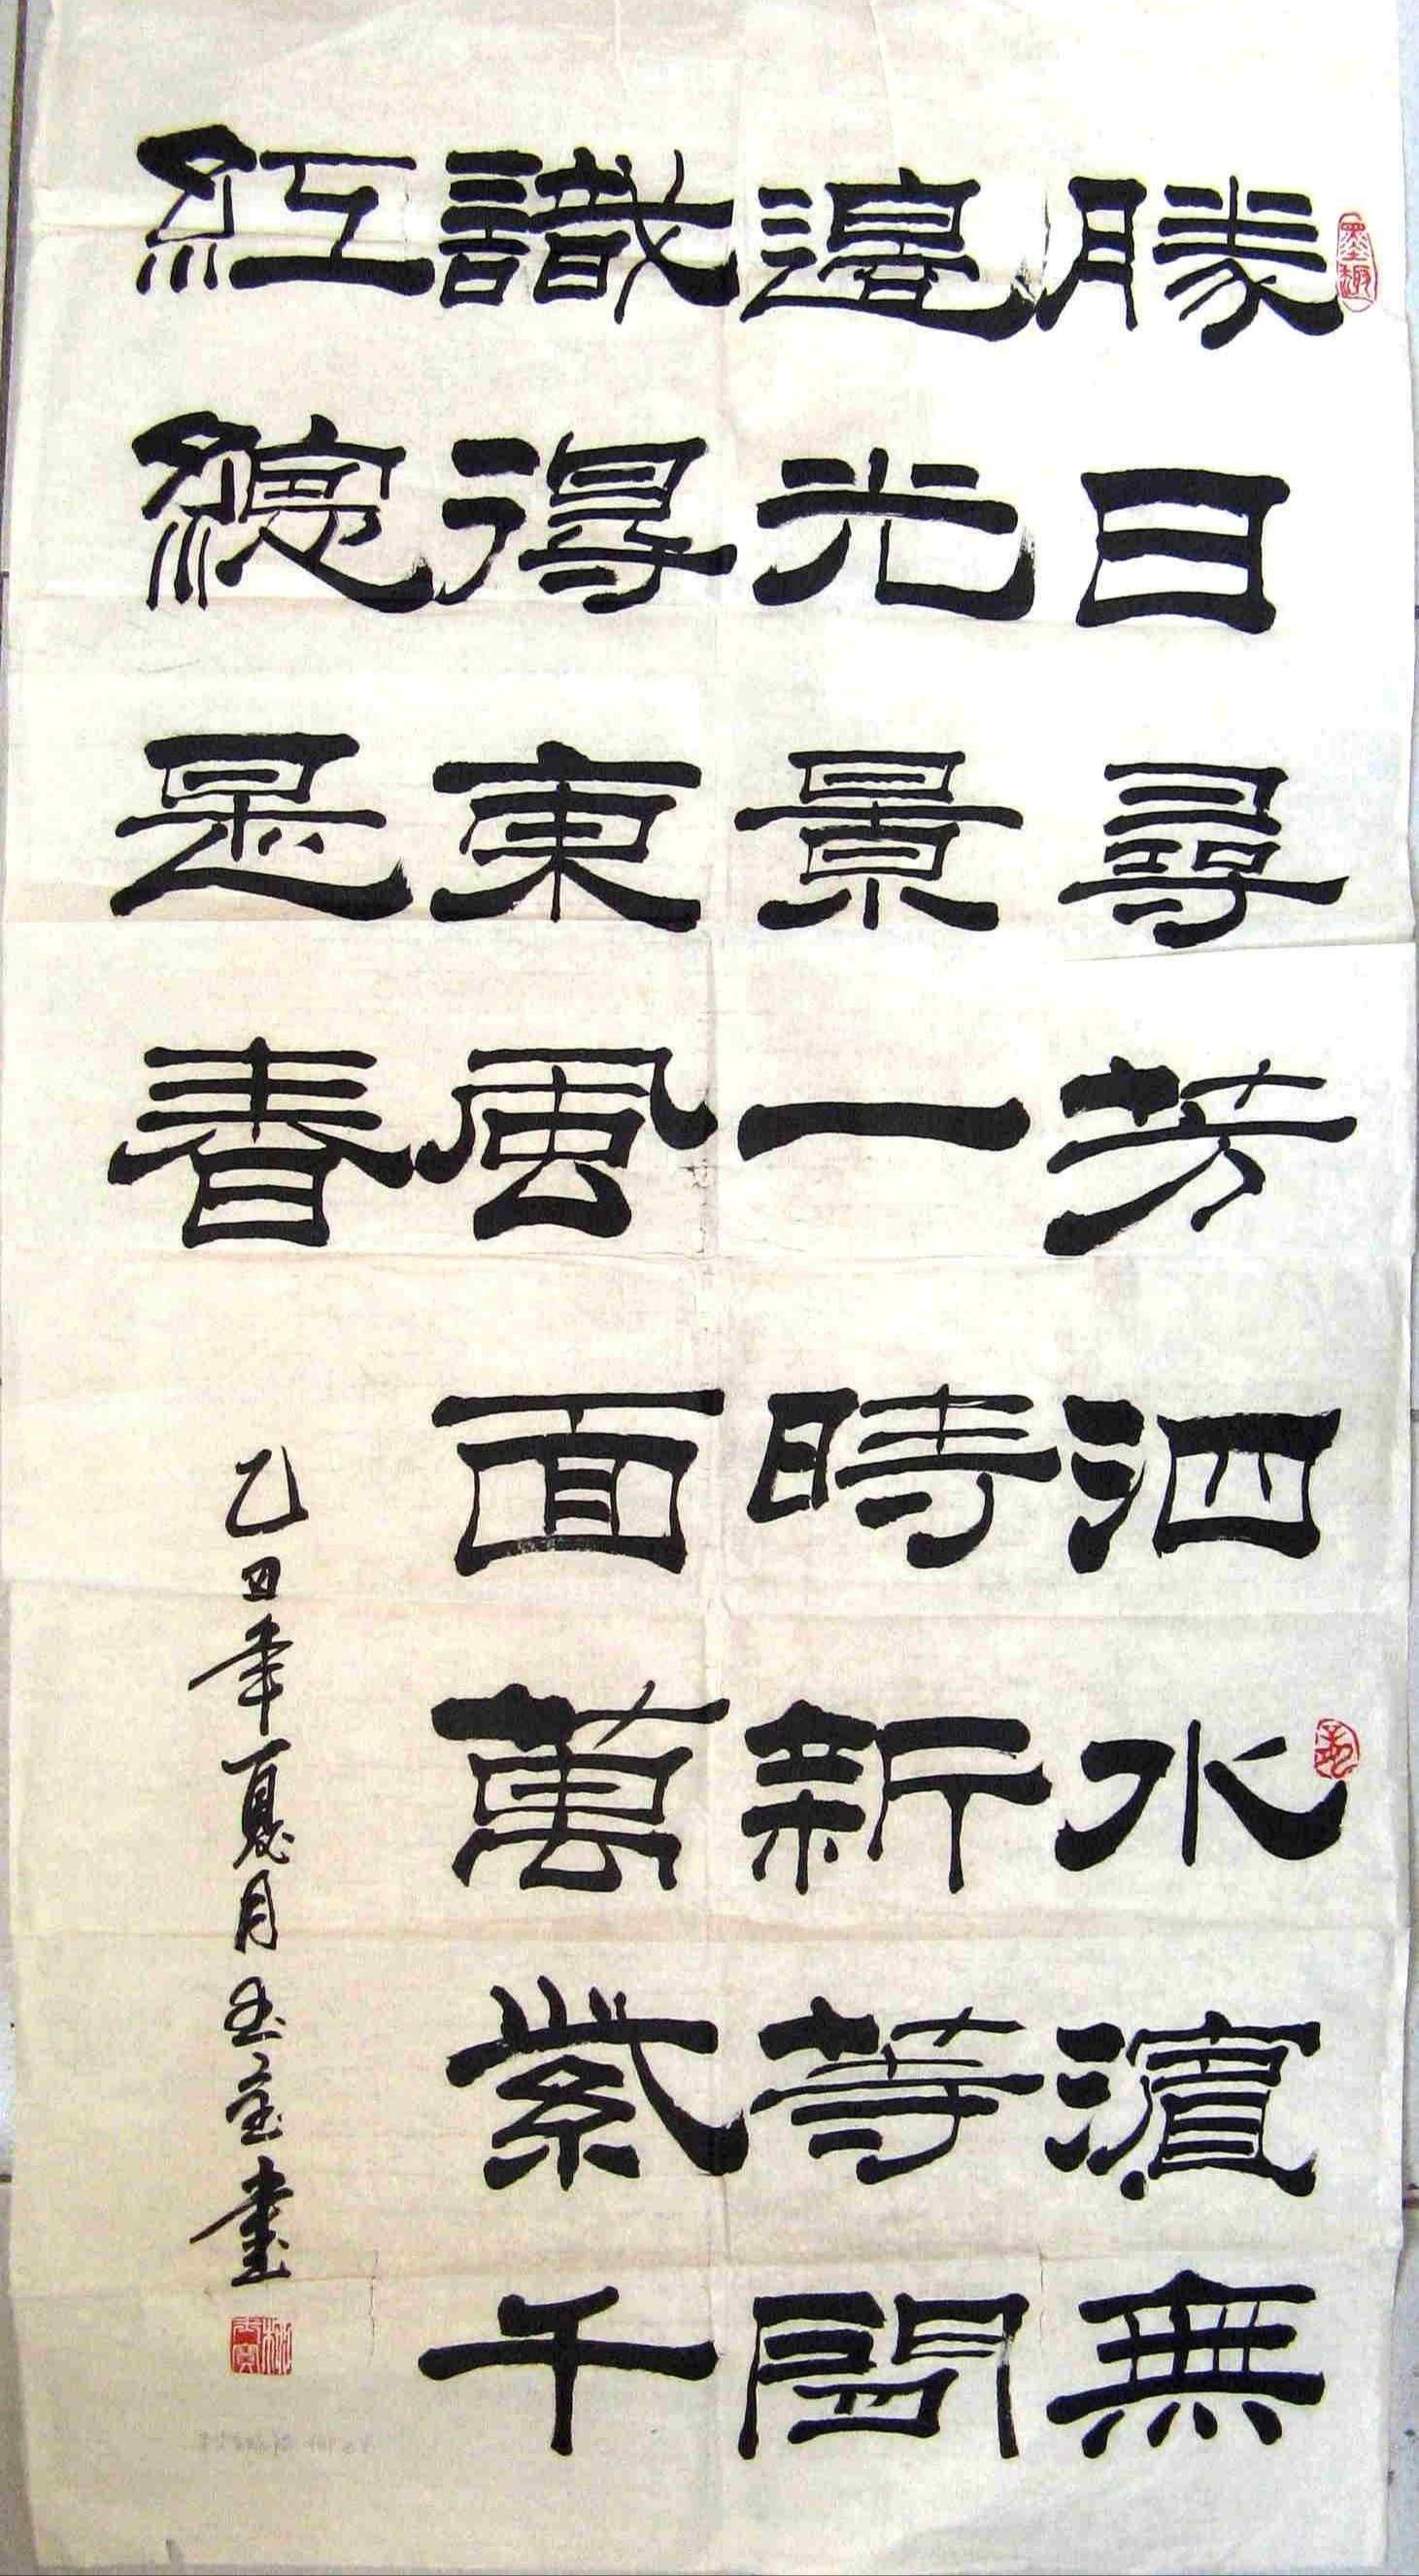 勝日尋芳泗水濱無
邊光景一時新等閒
識得東風面萬紫千
紅總是春
乙丑年夏月玉宝書
墨趣